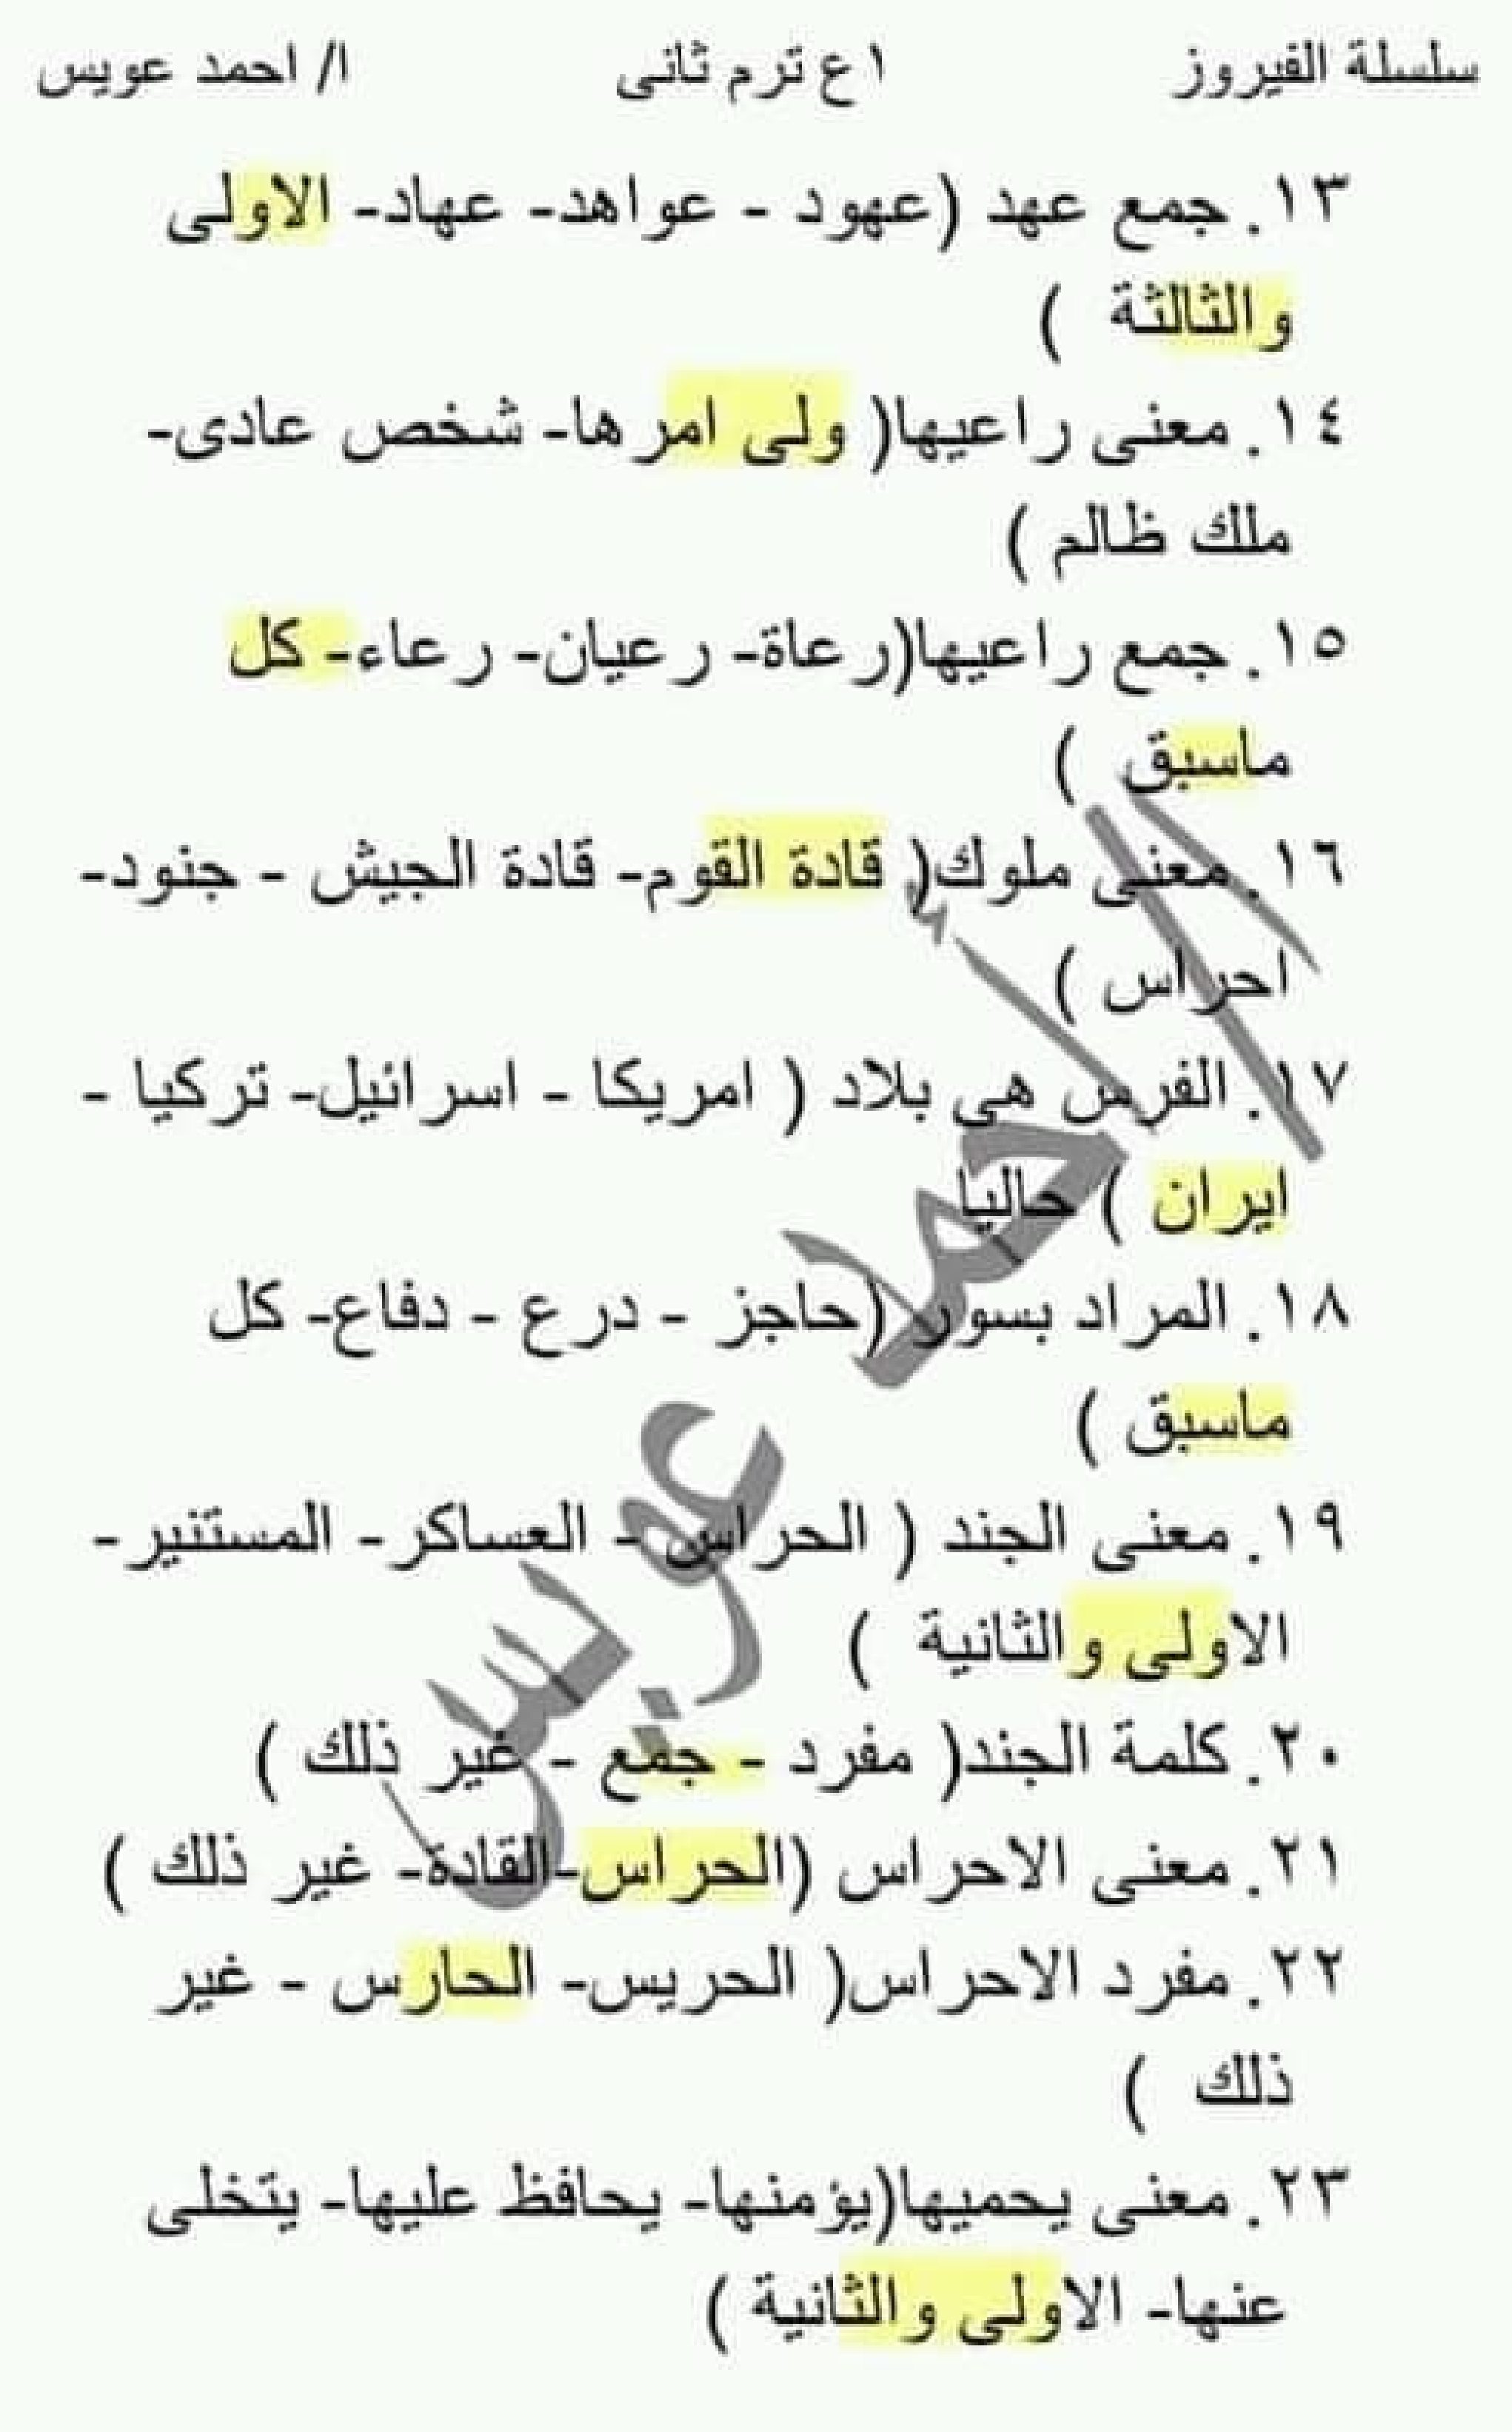 سلسلة الفيروز ١ع ترم ثانى ا/ احمد عويس
١٣. جمع عهد (عهود - عواهد- عهاد- الاولى
والثالثة )
١٤. معنى راعيها( ولى امرها- شخص عادى-
ملك ظالم )
١٥. جمع راعيها(رعاة- رعيان- رعاء- كل
ماسبق )
١٦. معنى ملوك( قادة القوم- قادة الجيش - جنود-
احراس )
١٧. الفرس هى بلاد ( امريكا - اسرائيل- تركيا -
ايران ) حاليا
١٨. المراد بسور (حاجز - درع - دفاع- كل
ماسبق )
١٩. معنى الجند ( الحراس - العساكر- المستنير-
الاولى والثانية )
٢٠. كلمة الجند( مفرد - جمع - غير ذلك )
٢١. معنى الاحراس (الحراس-القادة- غير ذلك )
٢٢. مفرد الاحراس( الحريس- الحارس - غير
ذلك )
٢٣. معنى يحميها(يؤمنها- يحافظ عليها- يتخلى
عنها- الاولى والثانية )
ا/ احمد عويس